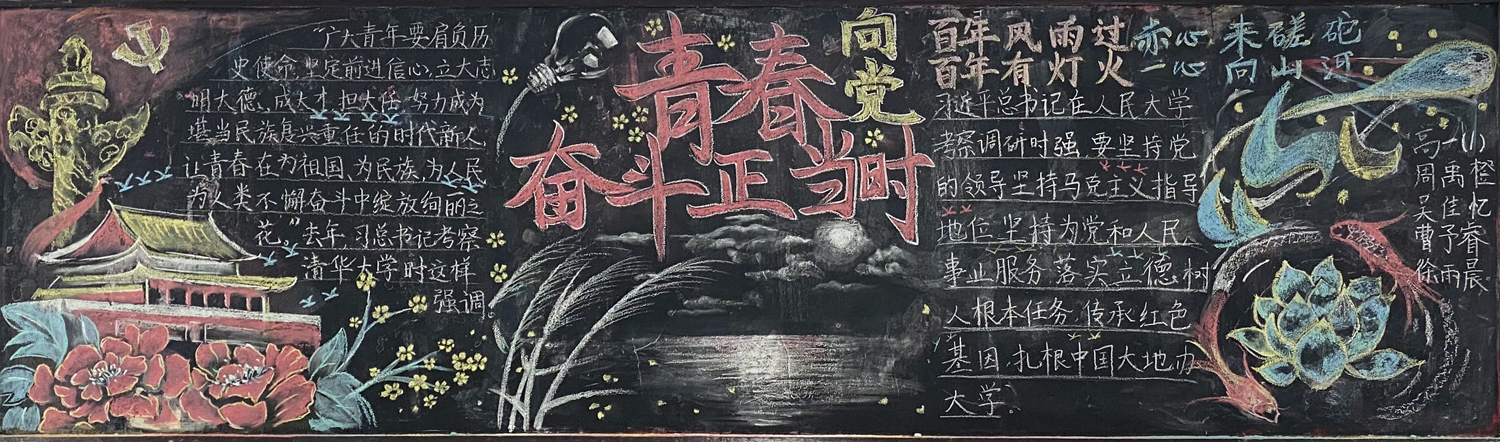 "广大青年要肩负历
史使命,坚定前进信心,立大志
明大德、成大才、担大任,努力成为
堪当民族复兴重任的时代新人
让青春在为祖国、为民族、为人民
为人类不懈奋斗中绽放绚丽之
花。"去年,习总书记考察
清华大学时这样
强调
青春
向党
奋斗正当时
百年风雨过 赤心来磋砣
百年有灯火 一心向山河
习近平总书记在人民大学
考察调研时强,要坚持党
的领导坚持马克主义指导
地位,坚持为党和人民
事业服务落实立德树
人根本任务,传承红色
基因,扎根中国大地办
大学。
高一(1)
周禹橙
吴佳忆
曹予睿
徐雨晨